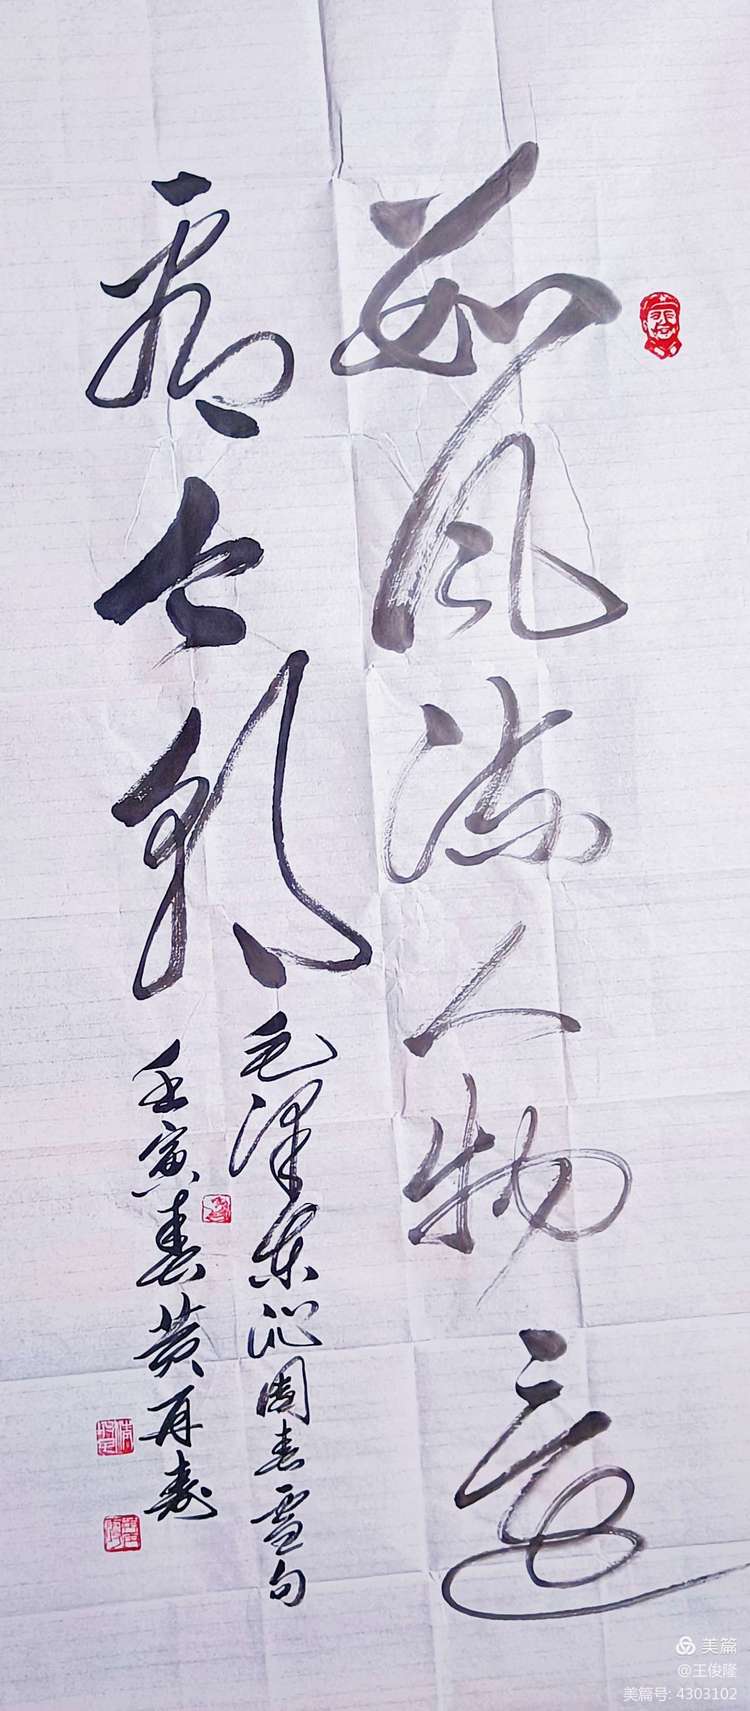 数风流人物还
看今朝
毛泽东沁园春雪句
壬寅春黄再寿
美篇
@王俊隆
美篇号: 4303102